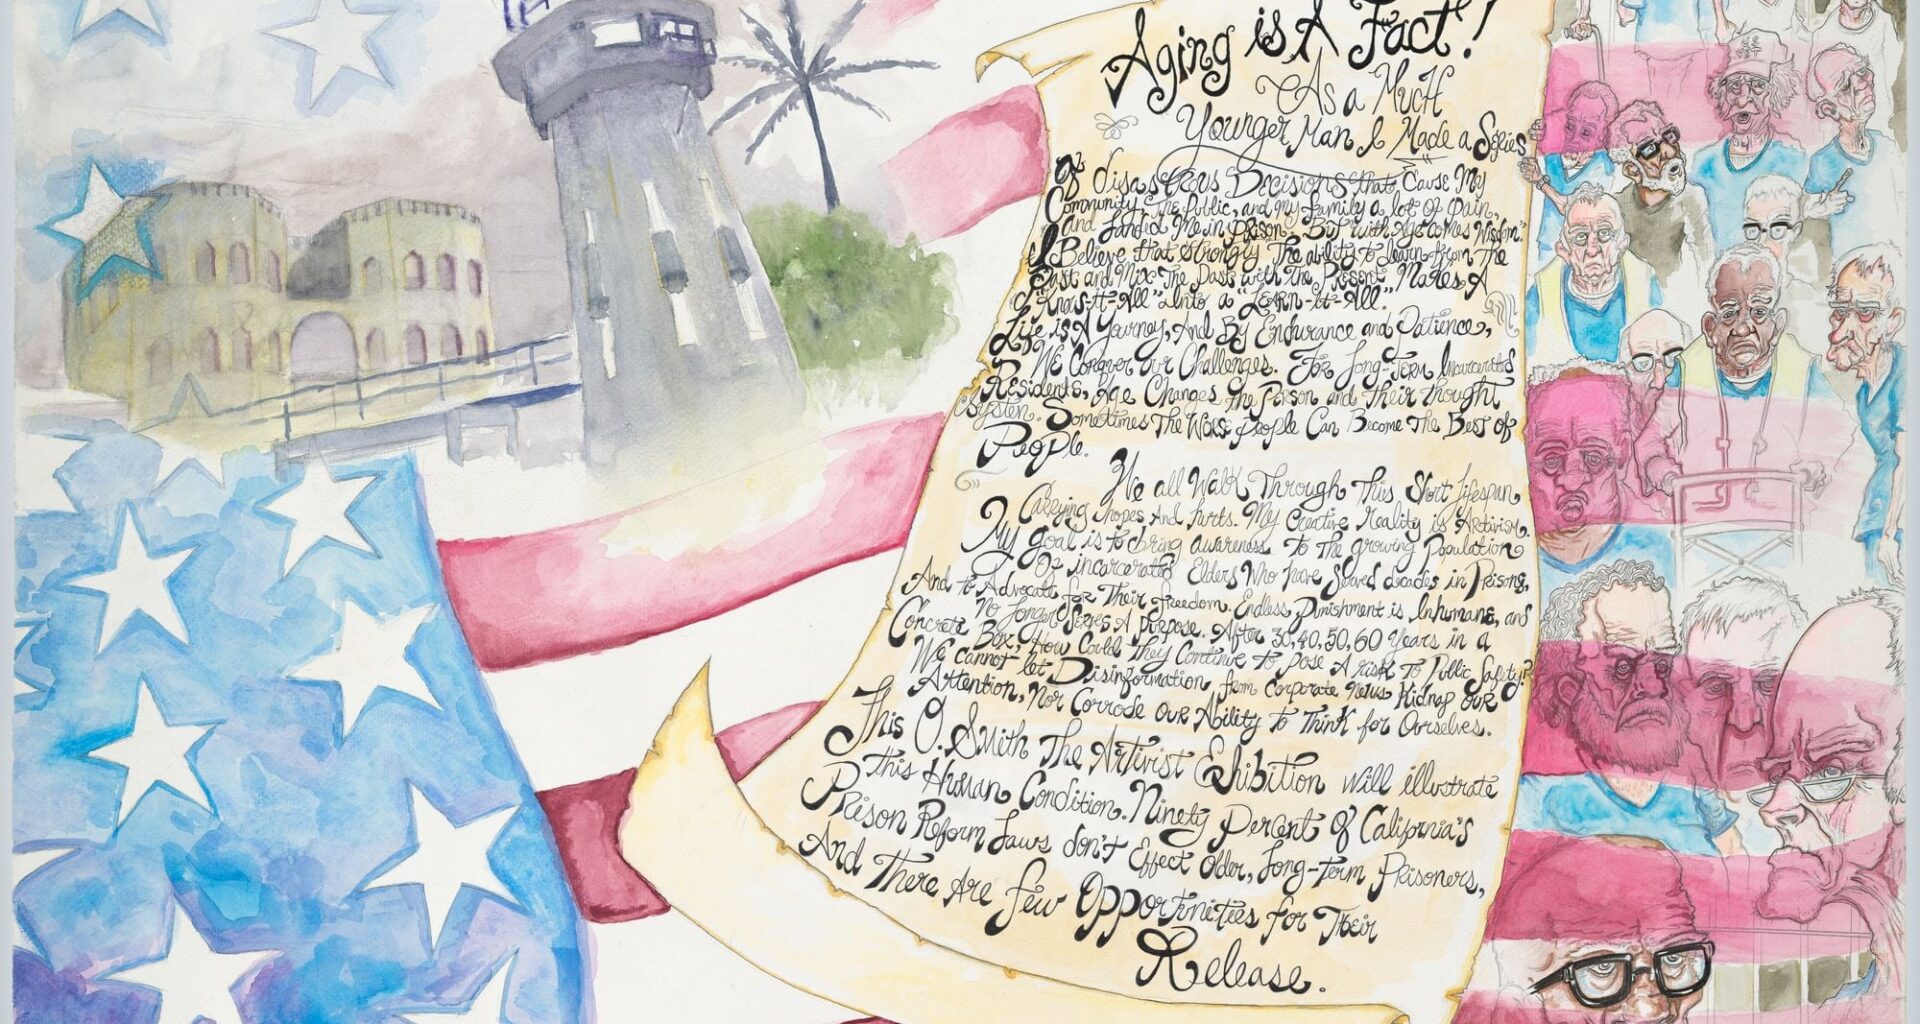 Aging is A Fact!
As a Much
Younger Man I Made a Series
Of disastrous Decisions that Cause My
Community, The Public, and my family a lot of Pain,
and Landid Me in Prison. But with Age comes Wisdom.
I Believe that strongly. The ability to learn from The
Past and Mix The Past with The Present, Makes A
"Know-It-All" into a "Learn-It-All".
Life is A Journey, And By Endurance and Patience,
We Conquer Our Challenges. For Long-Term Incarcerated
Residents, Age Changes The Person and Their thought
System. Sometimes The Worse People Can Become The Best of
People.
We all Walk Through This Short lifespan
Carrying hopes And hurts. My Creative reality is Artivism.
My goal is to bring awareness To The growing Population
Of incarcerated Elders Who have Served decades in Prisons,
And to Advocate for Their Freedom. Endless Punishment is Inhumane, and
No Longer Serves A Purpose. After 30, 40, 50, 60 Years in a
Concrete Box, How Could They Continue to pose A risk To Public Safety?
We cannot let Disinformation from Corporate News Kidnap our
Attention, Nor Corrode our Ability to Think for Ourselves.
This O. Smith The Artivist Exhibition will illustrate
this Human Condition. Ninety Percent Of California's
Prison Reform Laws don't Effect Older, Long-Term Prisoners,
And There Are few Opportunities for Their
Release.